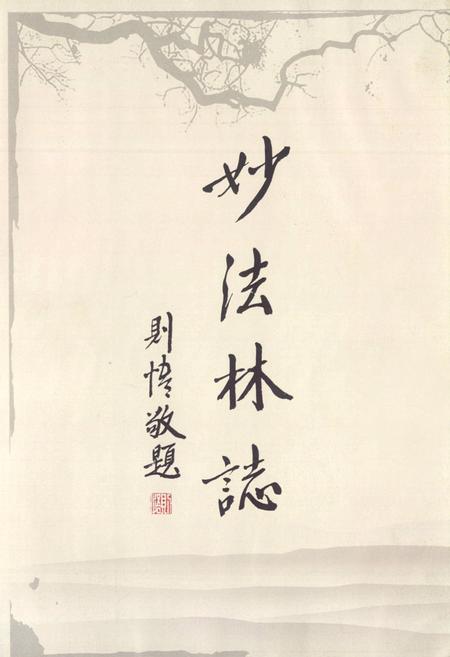 妙法林誌
則悟敬題
則悟